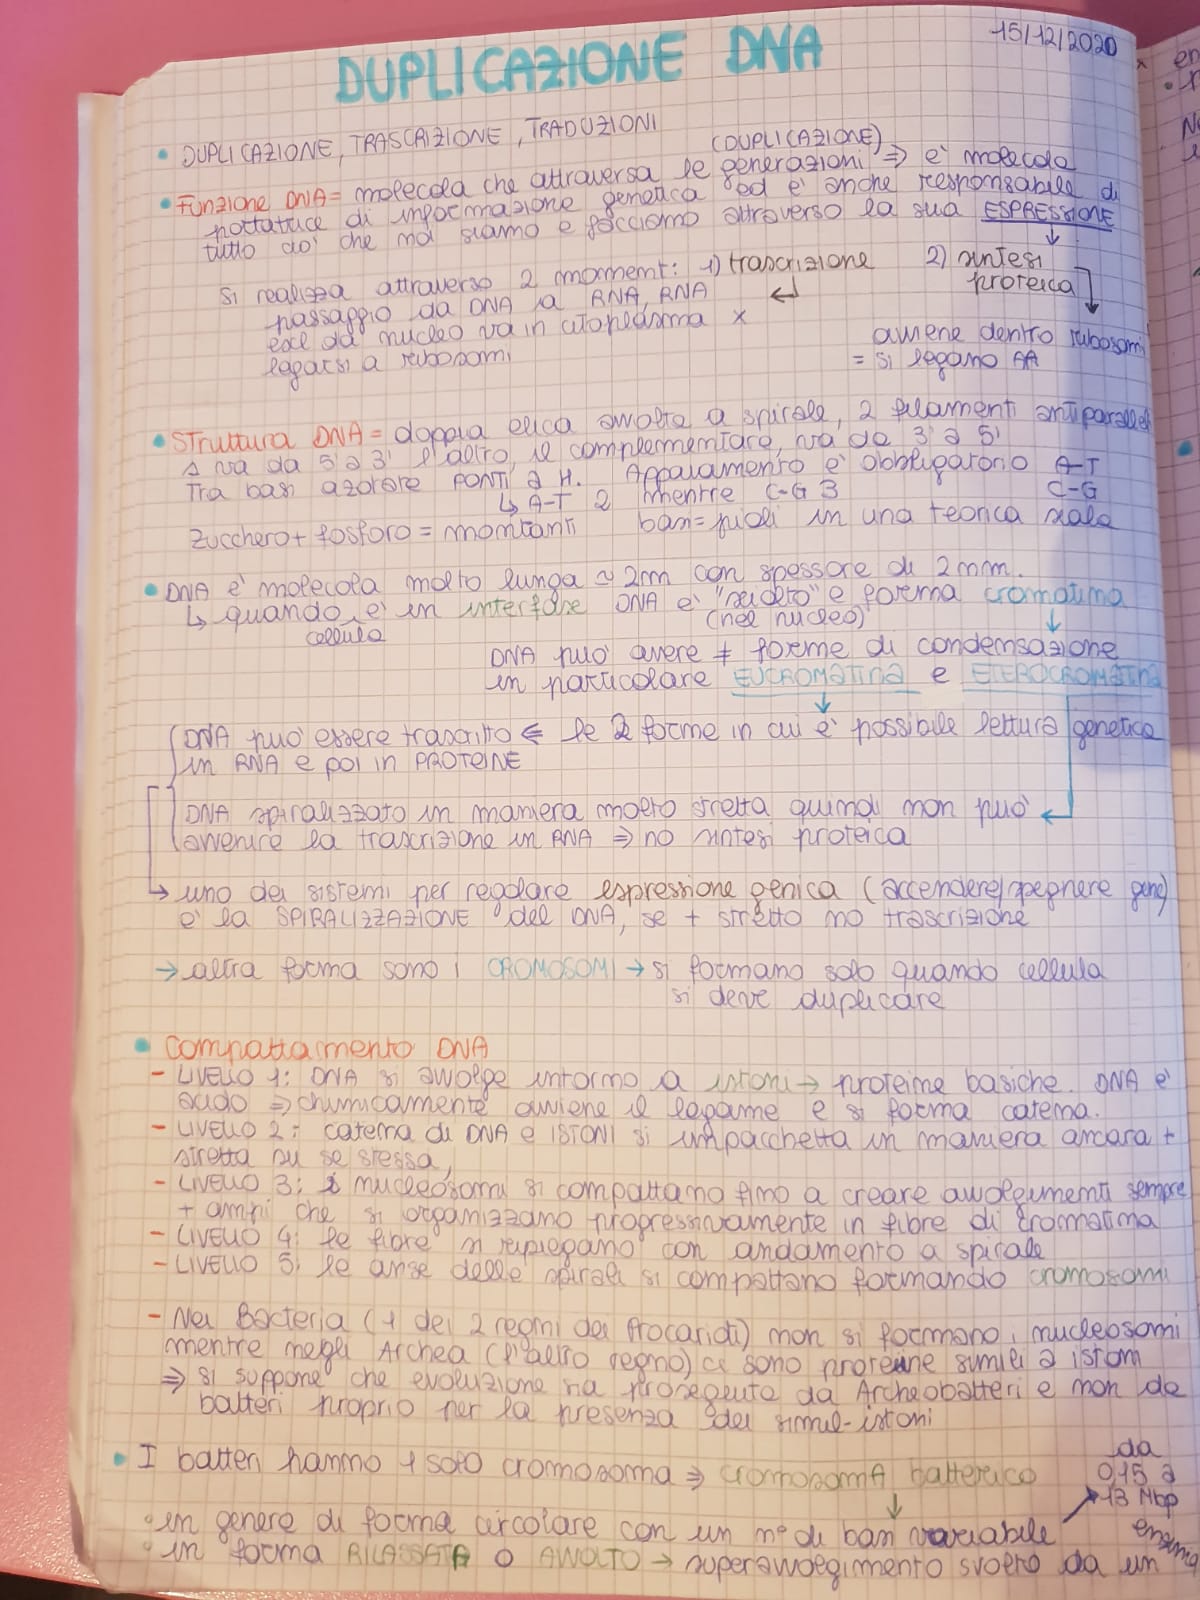 15/12/2020
DUPLICAZIONE DNA
• DUPLICAZIONE, TRASCRIZIONE, TRADUZIONI
(DUPLICAZIONE)
• Funzione DNA = molecola che attraversa le generazioni ⇒ è molecola
portatrice di informazione genetica ed è anche responsabile di
tutto ciò che noi siamo e facciamo attraverso la sua ESPRESSIONE
↓
Si realizza attraverso 2 momenti: 1) trascrizione 2) sintesi
proteica
passaggio da DNA ia RNA, RNA ↵
esce da nucleo va in citoplasma x
legarsi a ribosomi
avviene dentro ribosomi
= si legano AA
• Struttura DNA = doppia elica avvolta a spirale, 2 filamenti antiparalleli
1 va da 5' a 3' l'altro, il complementare, va da 3' a 5'
Tra basi azotate PONTI a H. Appaiamento è obbligatorio A-T
↳ A-T 2 mentre C-G 3 C-G
Zucchero + fosforo = montanti basi = pioli in una teorica scala
• DNA è molecola molto lunga ~ 2m con spessore di 2mm.
↳ quando è in interfase DNA è "sciolto" e forma cromatina
cellula (nel nucleo) ↓
DNA può avere ≠ forme di condensazione
in particolare EUCROMATINA e ETEROCROMATINA
↓
DNA può essere trascritto ⇐ le 2 forme in cui è possibile lettura genetica
in RNA e poi in PROTEINE
DNA spiralizzato in maniera molto stretta quindi non può ←
avvenire la trascrizione in RNA ⇒ no sintesi proteica
↳ uno dei sistemi per regolare espressione genica (accendere/spegnere gene)
è la SPIRALIZZAZIONE del DNA, se + stretto no trascrizione
→ altra forma sono i CROMOSOMI → si formano solo quando cellula
si deve duplicare
• Compattamento DNA
- LIVELLO 1: DNA si avvolge intorno a istoni → proteine basiche. DNA è
acido ⇒ chimicamente avviene il legame e si forma catena.
- LIVELLO 2: catena di DNA e ISTONI si impacchetta in maniera ancora +
stretta su se stessa,
- LIVELLO 3: i nucleosomi si compattano fino a creare avvolgimenti sempre
+ ampi che si organizzano progressivamente in fibre di cromatina
- LIVELLO 4: le fibre si ripiegano con andamento a spirale
- LIVELLO 5: le anse delle spirali si compattano formando cromosomi
- Nei Bacteria (1 dei 2 regni dei Procarioti) non si formano i nucleosomi
mentre negli Archea (l'altro regno) ci sono proteine simili a istoni
⇒ si suppone che evoluzione sia proseguita da Archeobatteri e non da
batteri proprio per la presenza dei simil-istoni
• I batteri hanno 1 solo cromosoma ⇒ cromosomA batterico
↓
da
0,15 a
13 Mbp
◦ in genere di forma circolare con un n° di basi variabile
◦ in forma RILASSATA O AVVOLTO → superavvolgimento svolto da un
enzima